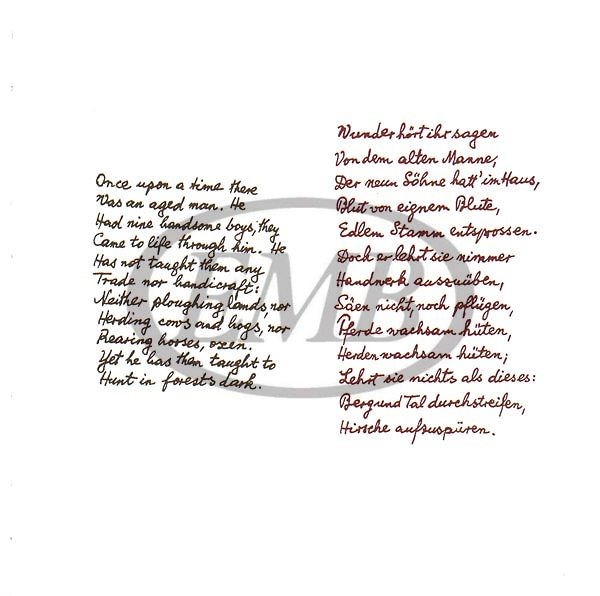 Once upon a time there
Was an aged man. He
Had nine handsome boys, they
Came to life through him. He
Has not taught them any
Trade nor handicraft:
Neither ploughing lands, nor
Herding cows and hogs, nor
Rearing horses, oxen.
Yet he has them taught to
Hunt in forests dark.
Wunder hört ihr sagen
Von dem alten Manne,
Der neun Söhne hatt' im Haus,
Blut von eignem Blute,
Edlem Stamm entsprossen.
Doch er lehrt sie nimmer
Handwerk auszuüben,
Säen nicht, noch pflügen,
Pferde wachsam hüten,
Herden wachsam hüten;
Lehrt sie nichts als dieses:
Berg und Tal durchstreifen,
Hirsche aufzuspüren.
EMB